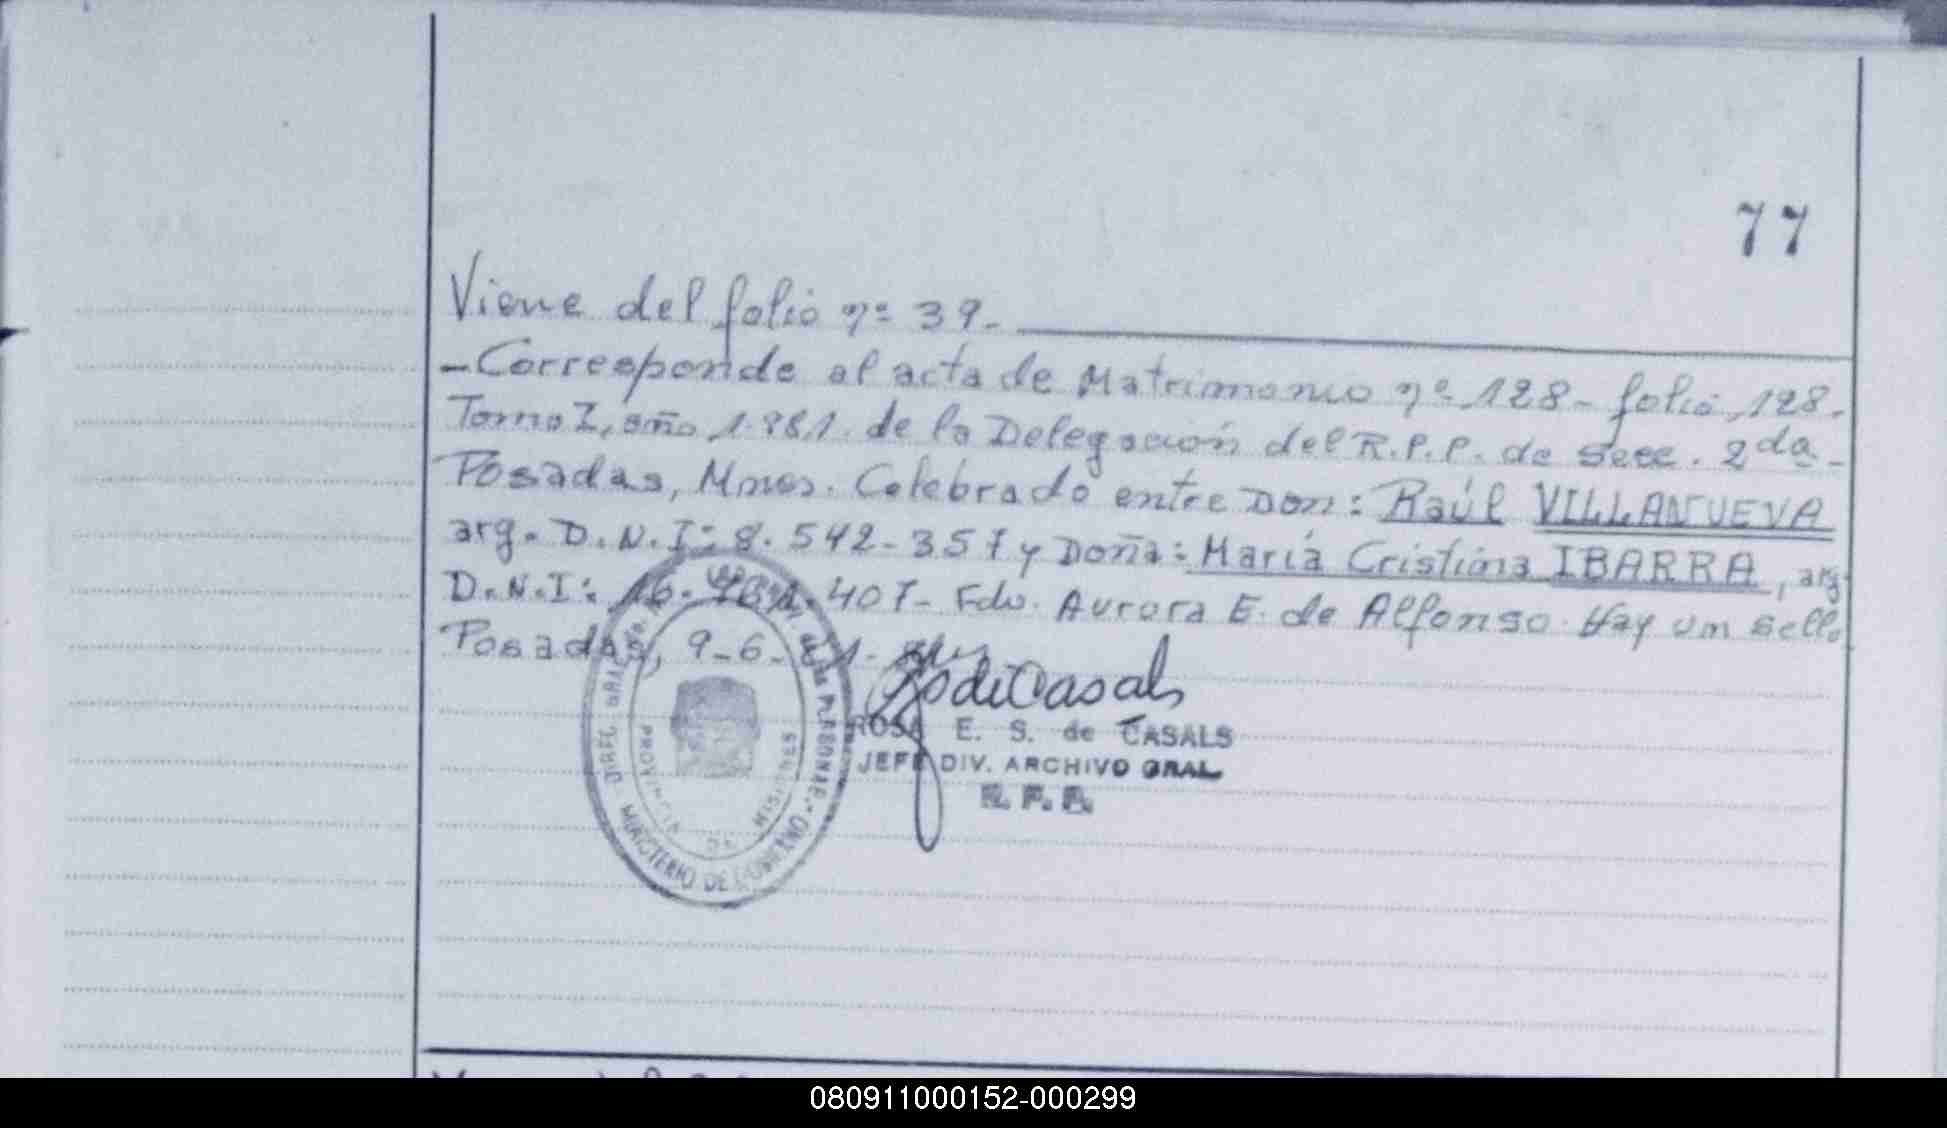 77
Viene del folio nº 39.
- Corresponde al acta de Matrimonio nº 128 - folio, 128.
Tomo I, año 1.981. de la Delegación del R.P.P. de Secc. 2da -
Posadas, Mnes. Celebrado entre Don: Raúl VILLANUEVA
arg. D.N.I: 8.542-357 y Doña: María Cristina IBARRA, arg.
D.N.I: 16. 407- Fdo. Aurora E. de Alfonso. Hay un sello
Posadas, 9-6-
ROSA E. S. de CASALS
JEFE DIV. ARCHIVO GRAL
R. P. P.
MINISTERIO DE GOBIERNO
PROVINCIA DE MISIONES
080911000152-000299